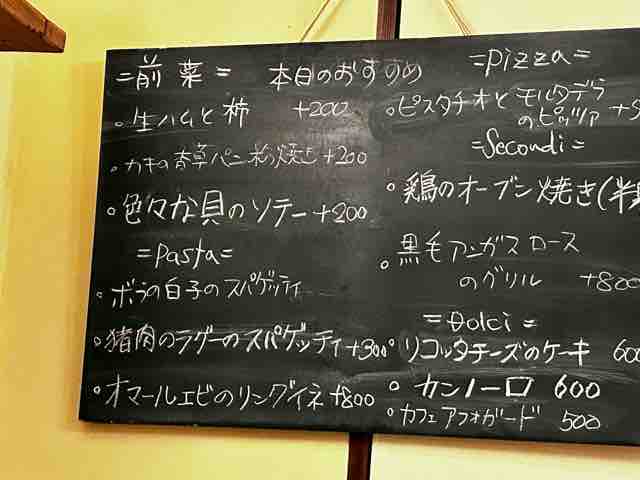 =前菜= 本日のおすすめ
。生ハムと柿 +200
。カキの香草パン粉焼き +200
。色々な貝のソテー +200
=Pasta=
。ボラの白子のスパゲッティ
。猪肉のラグーのスパゲッティ +300
。オマールエビのリングイネ +800
=Pizza=
。ピスタチオとモルタデラ
のピッツァ
=Secondi=
。鶏のオーブン焼き(半
。黒毛アンガスロース
のグリル +800
=Dolci=
。リコッタチーズのケーキ 600
。カンノーロ 600
。カフェアフォガード 500